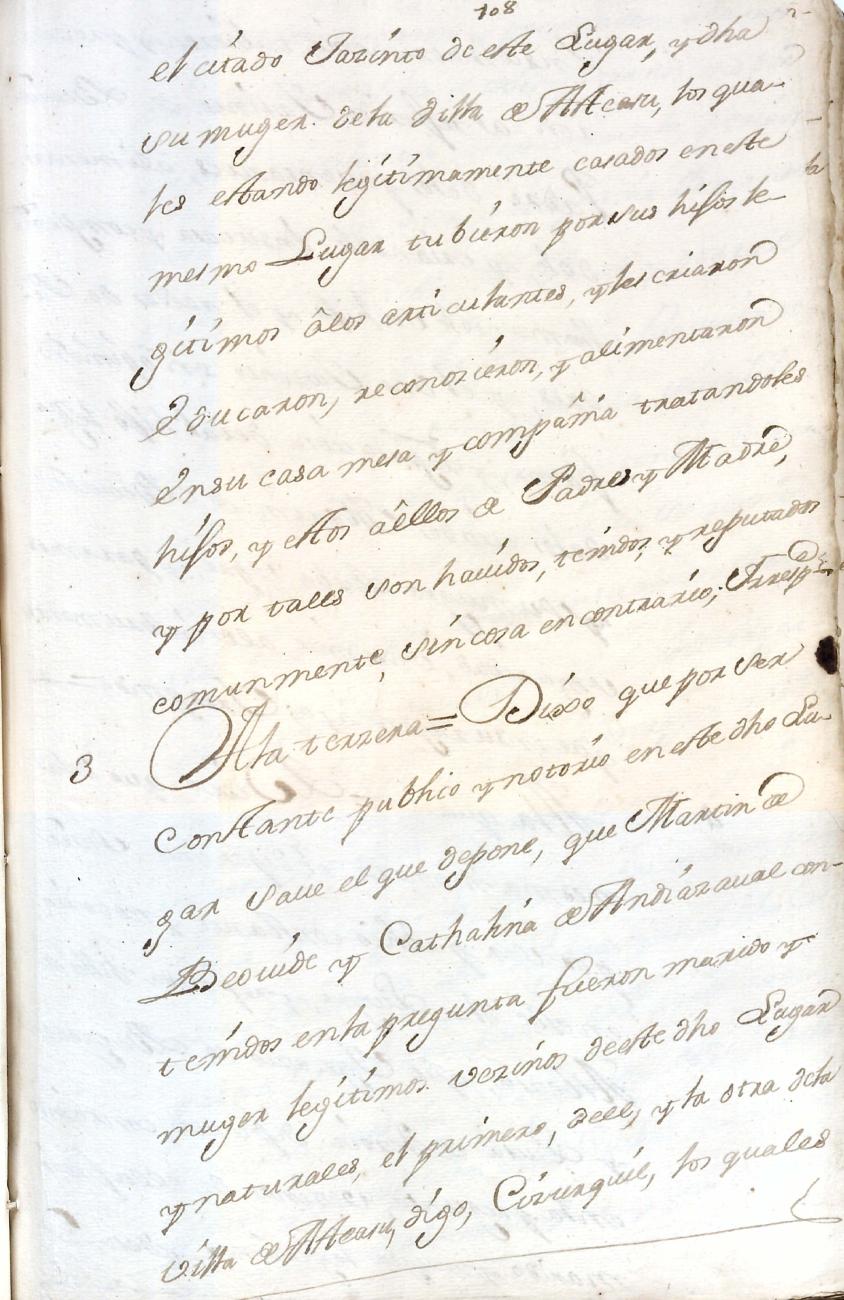 108
el citado Jazinto de este Lugar, y dha
su muger dela villa de Atteasu, los qua-
les estando legitimamente casados en este
mesmo Lugar tubieron por sus hijos le-
gitimos âlos articulantes, y les criaron
Educaron, reconozieron, y alimentaron
En su casa mesa y compañia tratandoles
hijos, y estos aêllos de Padres y Madre,
y por tales son hauidos, tenidos, y reputados
comunmente, sin cosa en contrario, 
3 Ala terzera = Dixo que por ser
constante publico y notorio en este dho Lu-
gar saue el que depone, que Martin de
Beouide y Cathalina de Andiazaual con-
tenidos enla pregunta fueron marido y
muger legitimos vezinos deeste dho Lugar
y naturales, el primero, deel, y la otra dela
villa de Atteasu, digo, Cizurquil, los quales